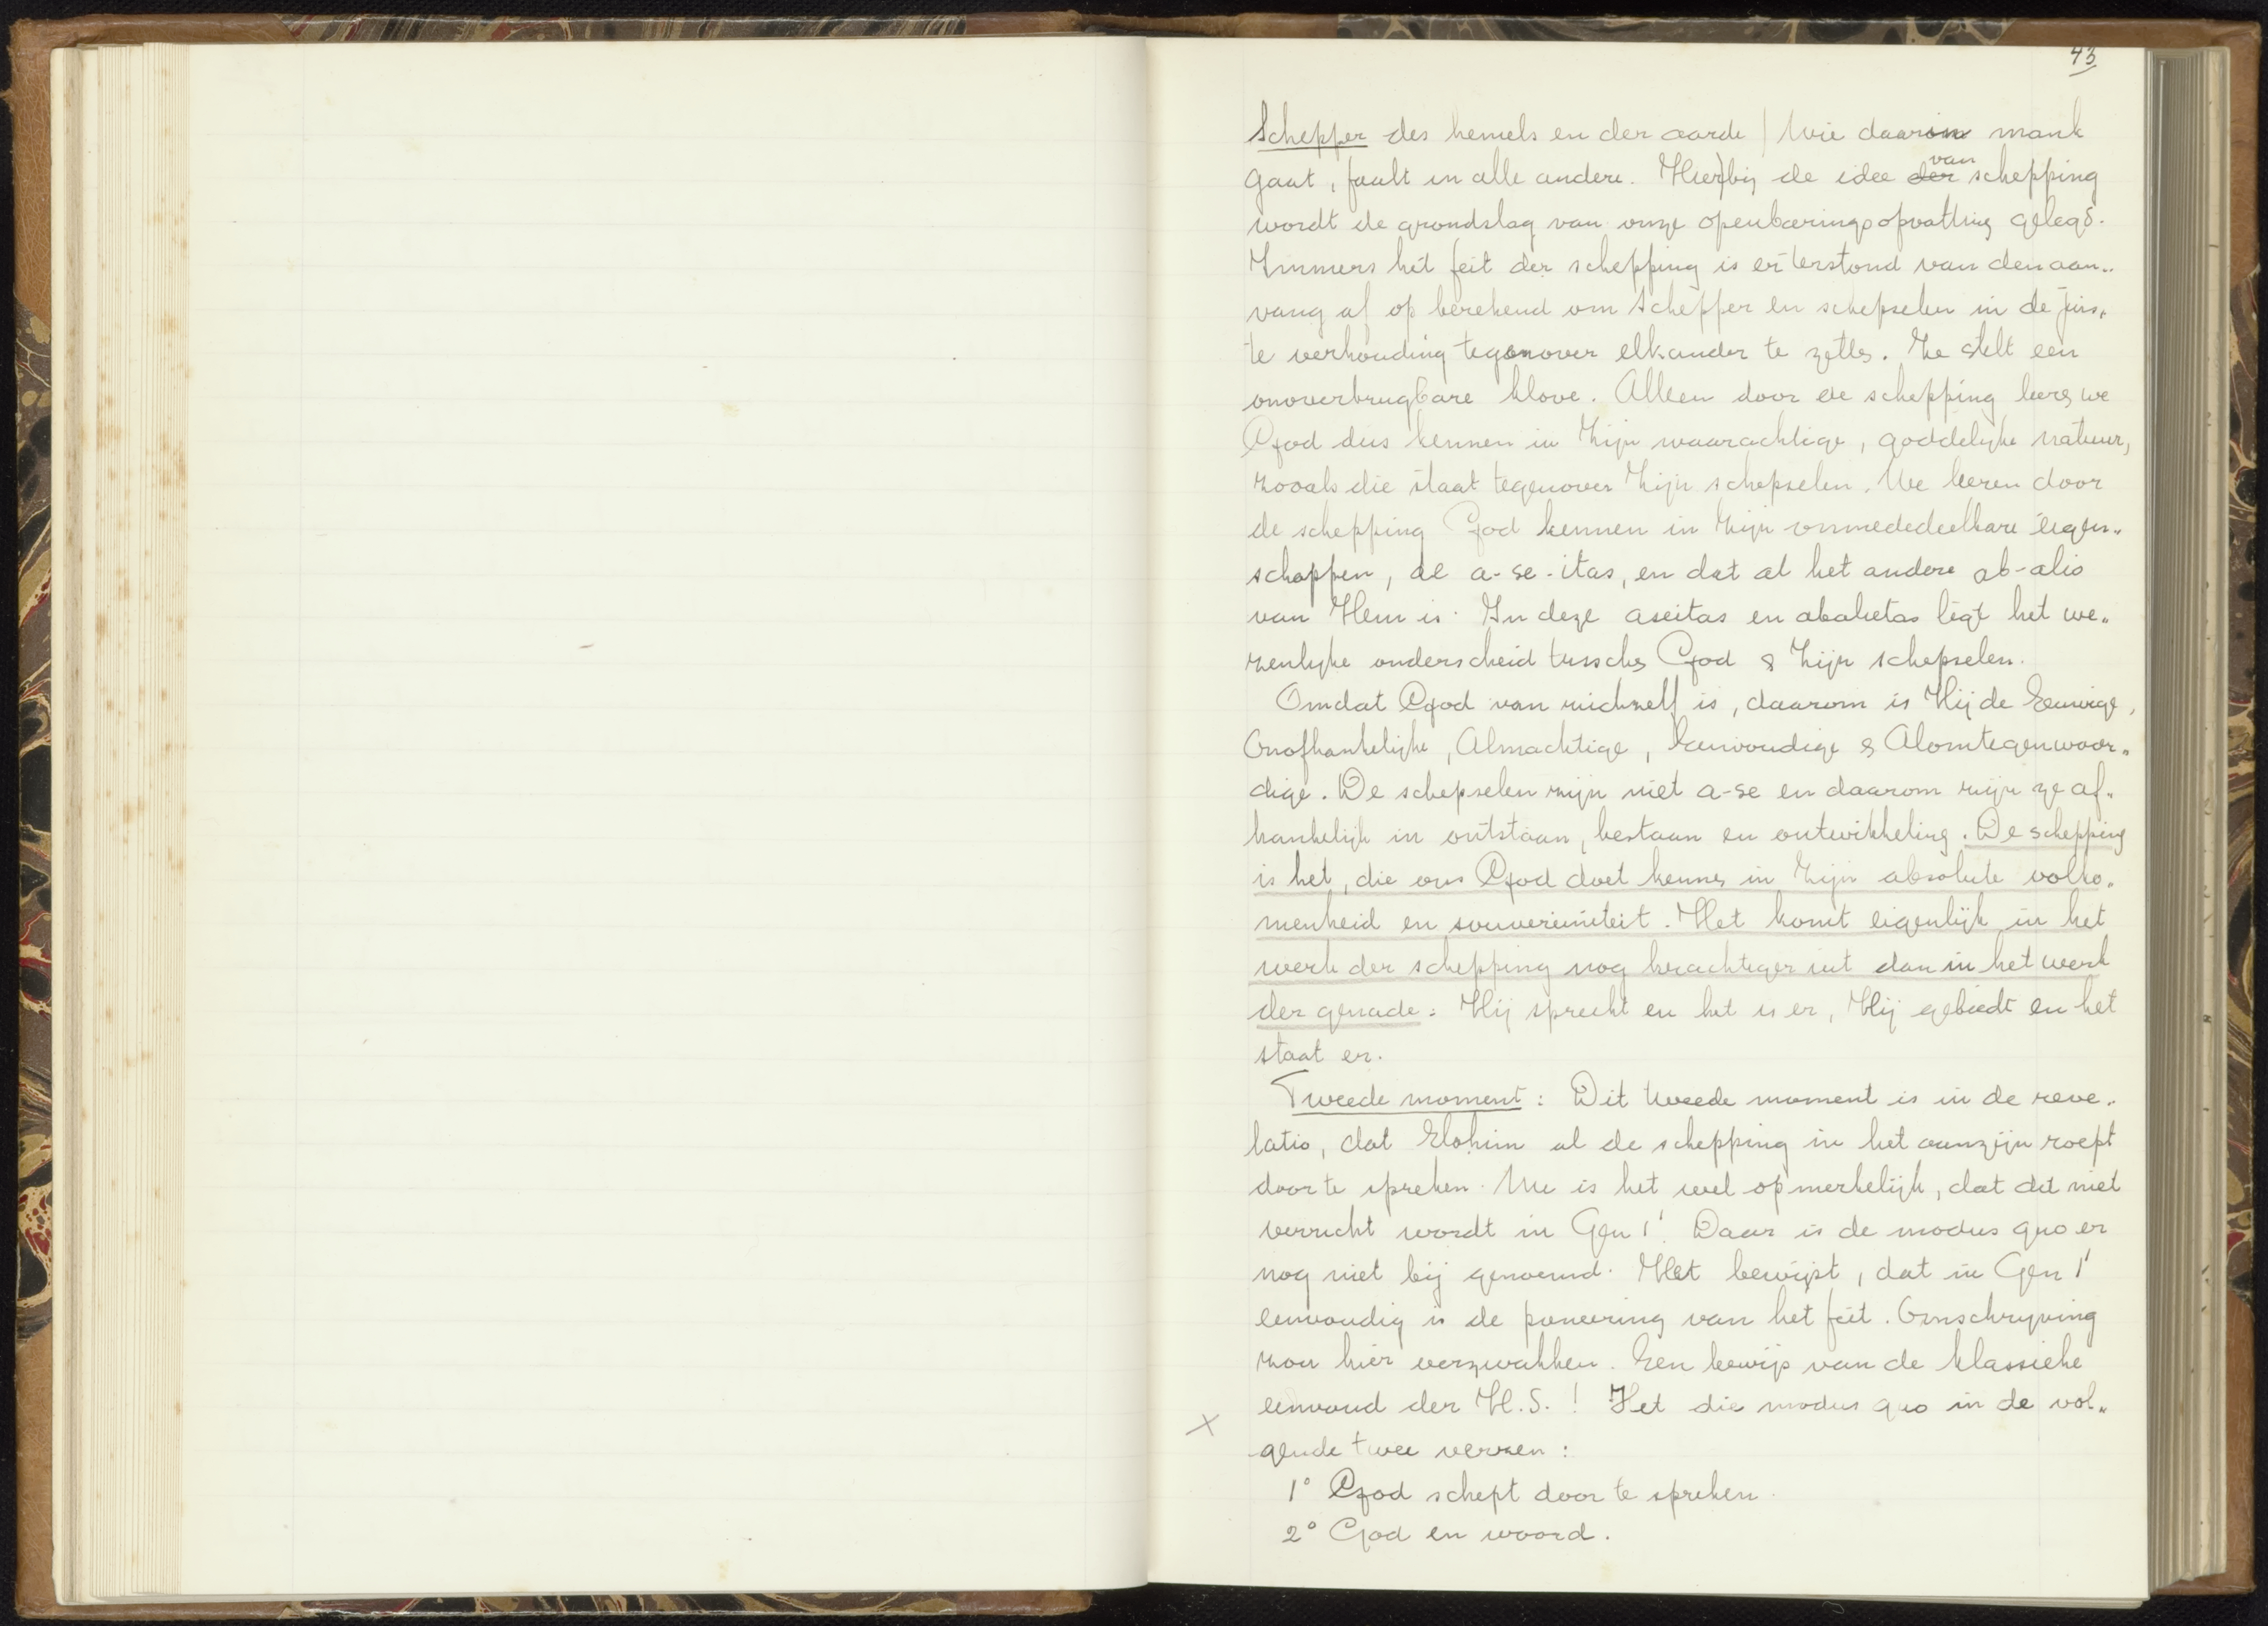 43
Schepper des hemels en der aarde | Wie daarin mank
gaat, faalt in alle andere. Hierbij de idee der van schepping
wordt de grondslag van onze openbaringsopvatting gelegd.
Immers het feit der schepping is er terstond van den aan„
vang af op berekend om Schepper en schepselen in de juis„
te verhouding tegenover elkander te zetten. Ze stelt een
onoverbrugbare klove. Alleen door de schepping leeren we
God dus kennen in Zijn waarachtige, goddelijke natuur,
zooals die staat tegenover Zijn schepselen. We leeren door
de schepping God kennen in Zijn onmededeelbare eigen„
schappen, de a-se-itas, en dat al het andere ab-alio
van Hem is. In deze aseitas en abalietas ligt het we„
zenlijke onderscheid tusschen God & Zijn schepselen.
Omdat God van zichzelf is, daarom is Hij de Eeuwige,
Onafhankelijke, Almachtige, Eenvoudige & Alomtegenwoor„
dige. De schepselen zijn niet a-se en daarom zijn ze af„
hankelijk in ontstaan, bestaan en ontwikkeling. De schepping
is het, die ons God doet kennen in Zijn absolute volko„
menheid en souvereiniteit. Het komt eigenlijk in het
werk der schepping nog krachtiger uit dan in het werk
der genade: Hij spreekt en het is er, Hij gebiedt en het
staat er.
Tweede moment: Dit tweede moment is in de reve„
latio, dat Elohim al de schepping in het aanzijn roept
door te spreken. Nu is het wel opmerkelijk, dat dit niet
verricht wordt in Gen 1¹. Daar is de modus quo er
nog niet bij genoemd. Het bewijst, dat in Gen 1¹
eenvoudig is de poneering van het feit. Omschrijving
zou hier verzwakken. Een bewijs van de klassieke
eenvoud der H.S.! Het die modus quo in de vol„
X
gende twee verzen:
1° God schept door te spreken.
2° God en woord.